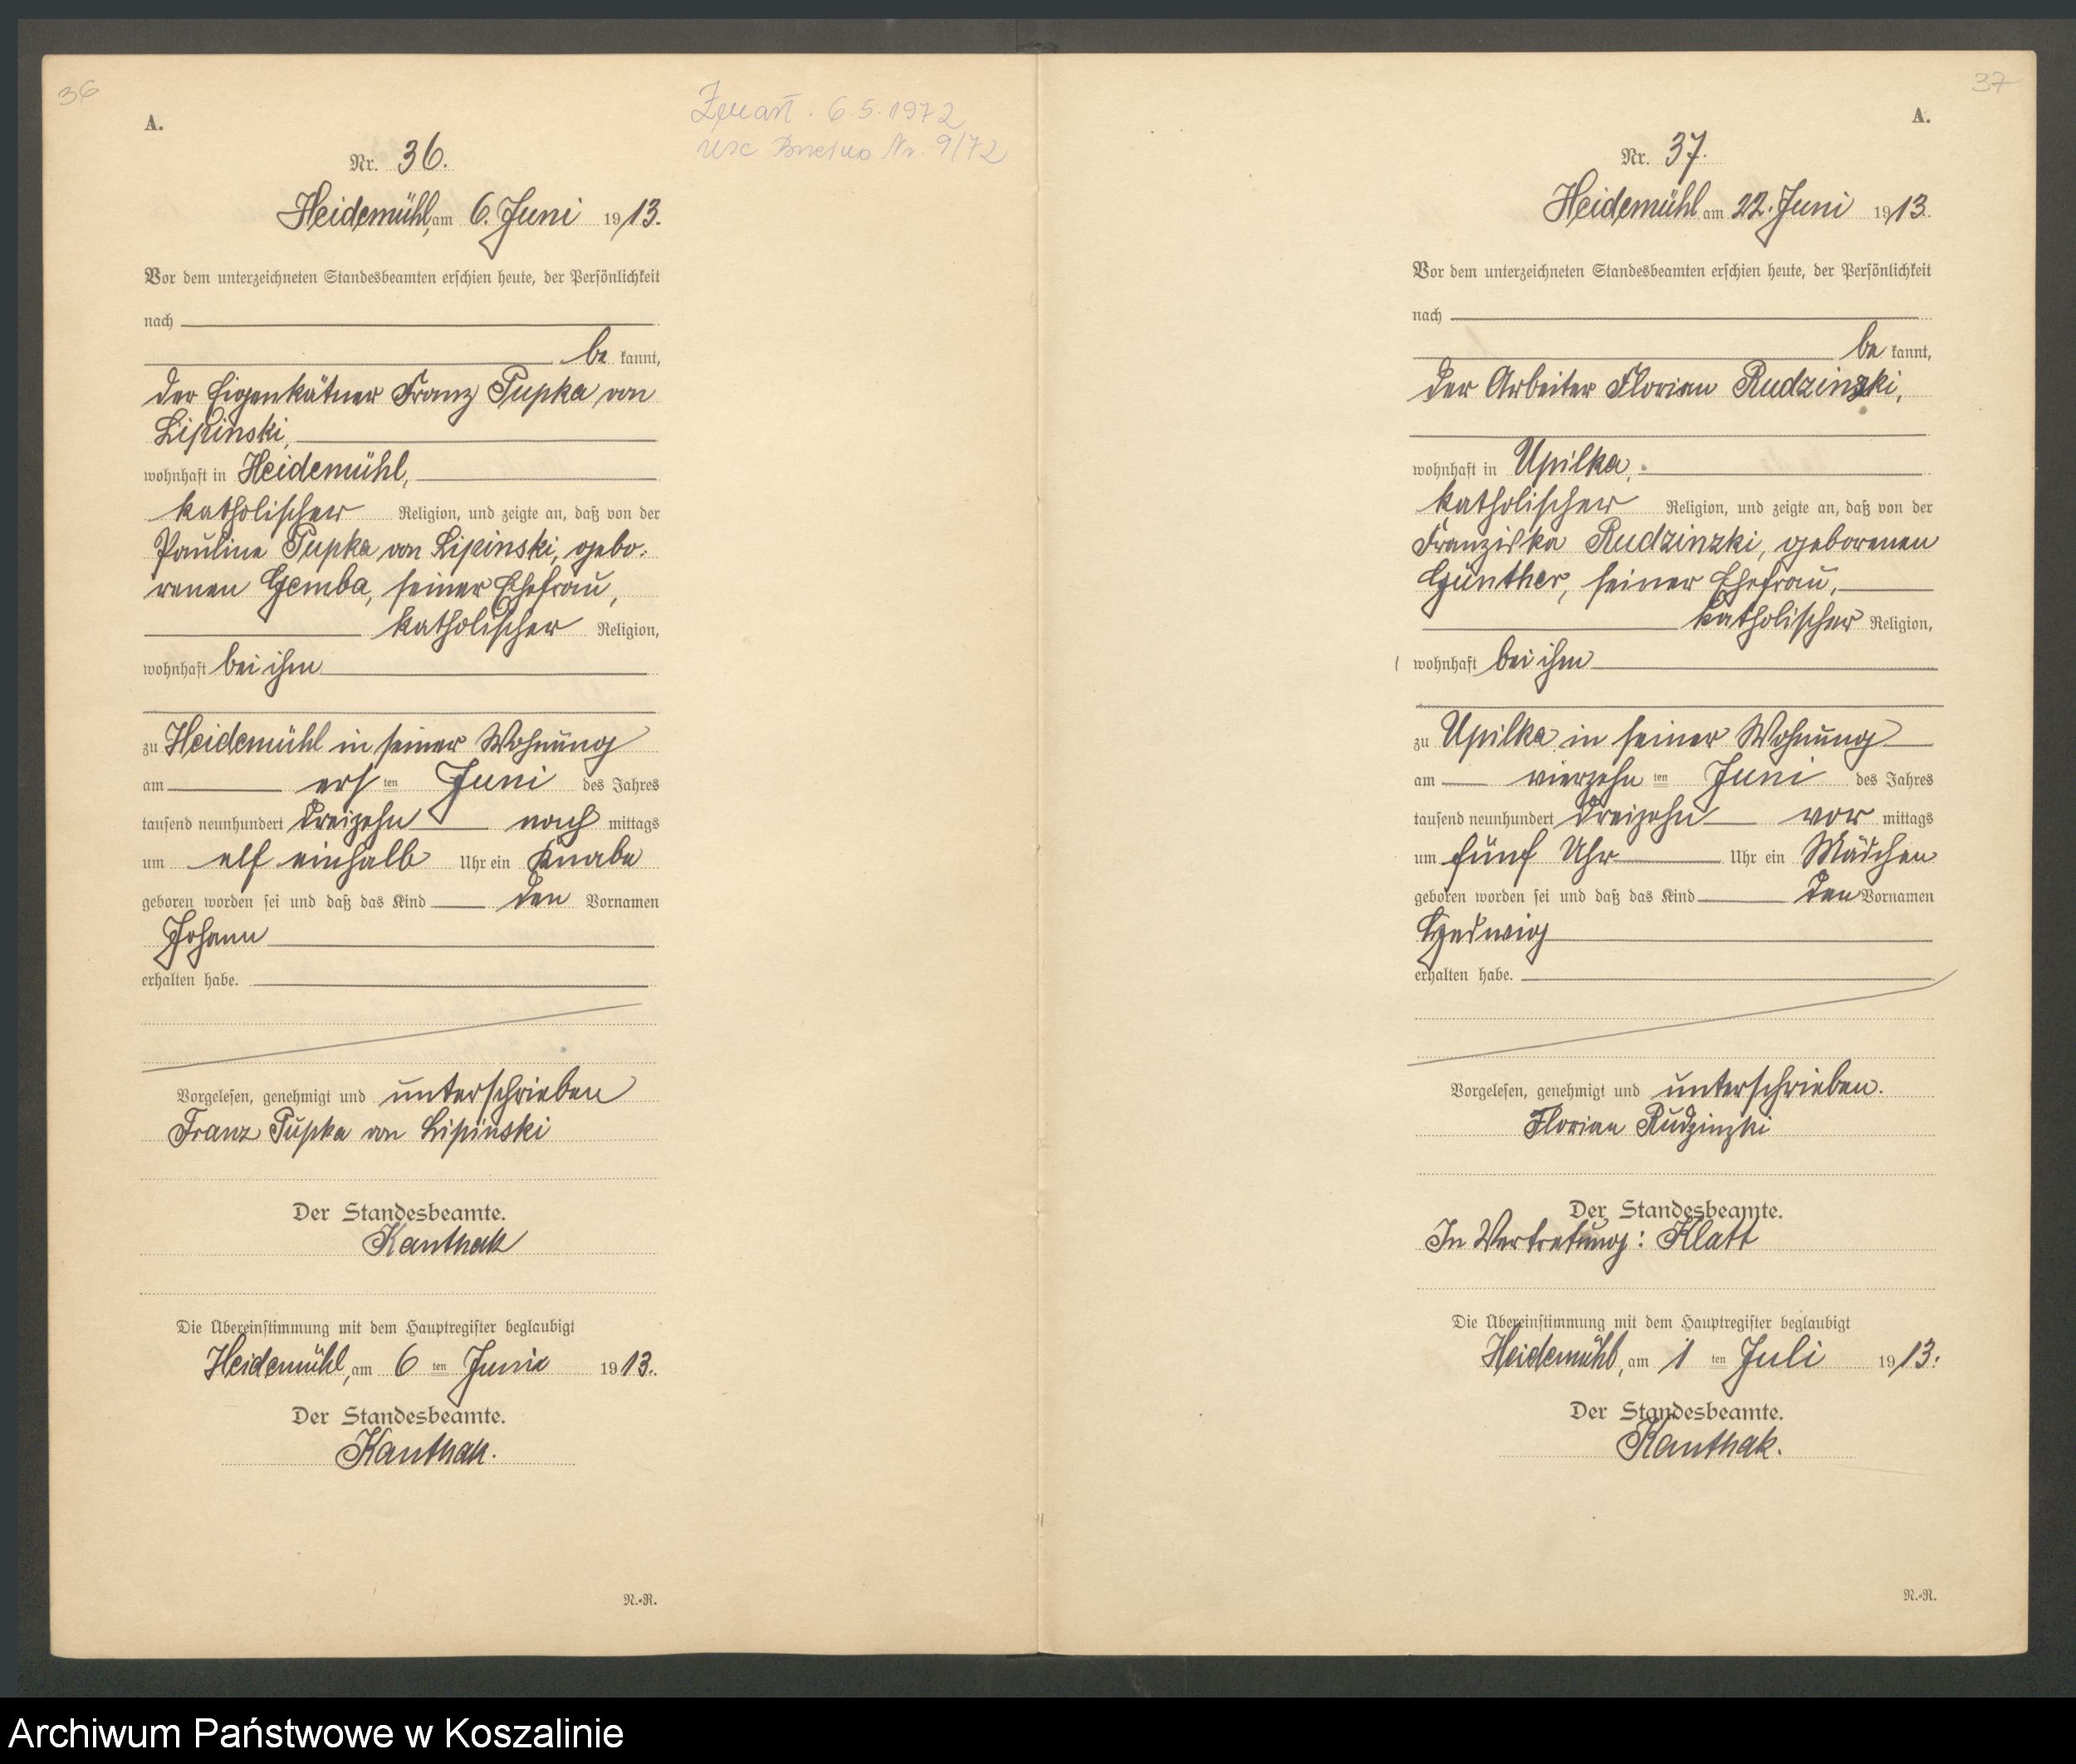 36
A.
Zmarł. 6.5.1972
usc Nr. 9/72
Nr. 36.
Heidemühl, am 6. Juni 1913.
Vor dem unterzeichneten Standesbeamten erschien heute, der Persönlichkeit
nach
be kannt,
der Eigenkätner Franz Pupka von
Lipinski,
wohnhaft in Heidemühl,
katholischer Religion, und zeigte an, daß von der
Pauline Pupka von Lipinski, gebo-
renen Gemba, seiner Ehefrau,
katholischer Religion,
wohnhaft bei ihm
zu Heidemühl in seiner Wohnung
am ers ten Juni des Jahres
tausend neunhundert dreizehn nach mittags
um elf einhalb Uhr ein Knabe
geboren worden sei und daß das Kind den Vornamen
Johann
erhalten habe.
Vorgelesen, genehmigt und unterschrieben
Franz Pupka von Lipinski
Der Standesbeamte.
Kanthak
Die Übereinstimmung mit dem Hauptregister beglaubigt
Heidemühl, am 6 ten Juni 1913.
Der Standesbeamte.
Kanthak.
N.-R.
37
A.
Nr. 37.
Heidemühl am 22. Juni 1913.
Vor dem unterzeichneten Standesbeamten erschien heute, der Persönlichkeit
nach
be kannt,
der Arbeiter Florian Rudzinzki,
wohnhaft in Upilka,
katholischer Religion, und zeigte an, daß von der
Franziska Rudzinzki, geborenen
Günther, seiner Ehefrau,
katholischer Religion,
wohnhaft bei ihm
zu Upilka in seiner Wohnung
am vierzehn ten Juni des Jahres
tausend neunhundert dreizehn vor mittags
um fünf Uhr Uhr ein Mädchen
geboren worden sei und daß das Kind den Vornamen
Hedwig
erhalten habe.
Vorgelesen, genehmigt und unterschrieben.
Florian Rudzinzki
Der Standesbeamte.
In Vertretung: Klatt
Die Übereinstimmung mit dem Hauptregister beglaubigt
Heidemühl, am 1 ten Juli 1913.
Der Standesbeamte.
Kanthak.
N.-R.
Archiwum Państwowe w Koszalinie